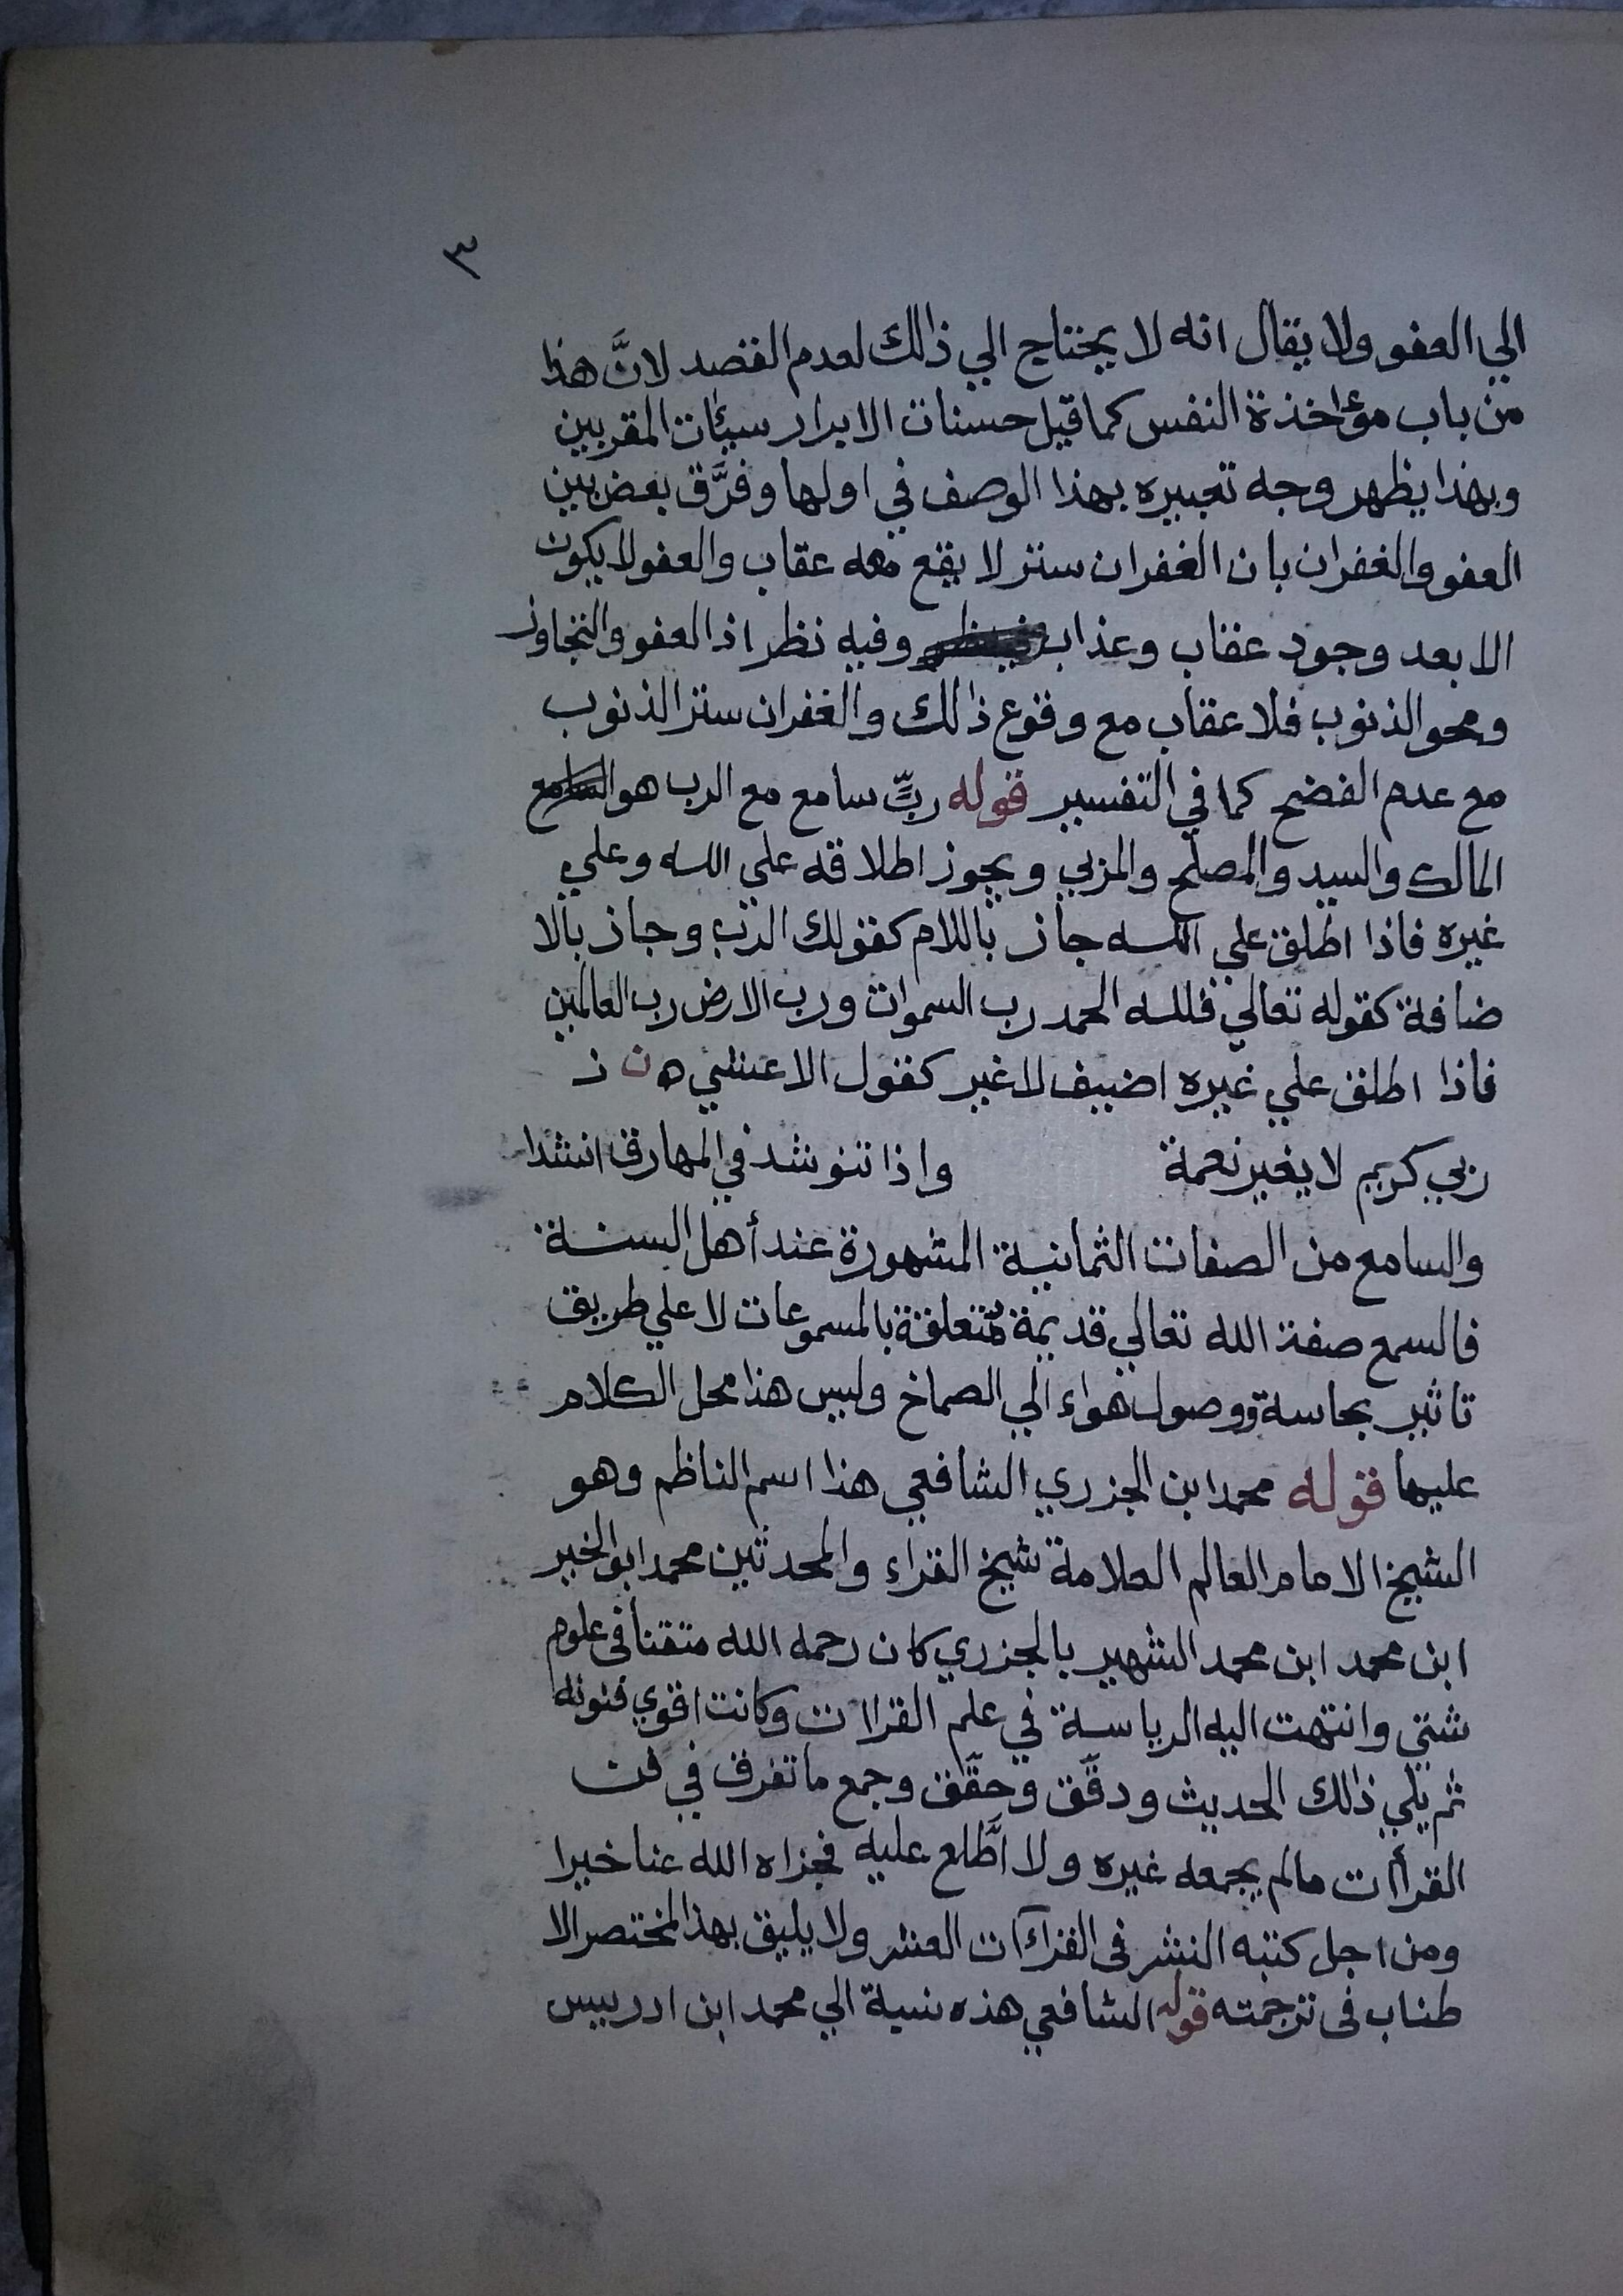 ٣
الي العفو ولا يقال انه لا يحتاج الي ذالك لعدم القصد لانَّ هذا
من باب مؤاخذة النفس كما قيل حسنات الابرار سيئات المقربين
وبهذا يظهر وجه تعبيره بهذا الوصف في اولها وفرَّق بعض بين
العفو والغفران بان الغفران ستر لا يقع معه عقاب والعفو لا يكون
الا بعد وجود عقاب وعذاب وفيه نظر اذ العفو والتجاوز
ومحو الذنوب فلا عقاب مع وقوع ذالك والغفران ستر الذنوب
مع عدم الفضح كما في التفسير قوله ربٍّ سامع مع الرب هو السامع
المالك والسيد والمصلح والمربي ويجوز اطلاقه علي الله وعلي
غيره فاذا اطلق علي الله جاز باللام كقولك الرب وجاز بالا
ضافة كقوله تعالي فلله الحمد رب السموات ورب الارض رب العالمين
فاذا اطلق علي غيره اضيف لا غير كقول الاعشي
ربي كريم لا يغير نعمة واذا تنوشد في المهارق انشدا
والسامع من الصفات الثمانية المشهورة عند أهل السنة
فالسمع صفة الله تعالي قديمة متعلقة بالمسموعات لا علي طريق
تاثير بحاسة ووصول هواء الي الصماخ وليس هذا محل الكلام
عليها قوله محمد ابن الجزري الشافعي هذا اسم الناظم وهو
الشيخ الامام العالم العلامة شيخ القراء والمحدثين محمد ابو الخير
ابن محمد ابن محمد الشهير بالجزري كان رحمه الله متقنا في علوم
شتي وانتهت اليه الرياسة في علم القراات وكانت اقوي فنونه
ثم يلي ذالك الحديث ودقَّق وحقَّق وجمع ما تفرق في فن
القرأات مالم يجمعه غيره ولا اطَّلع عليه فجزاه الله عنا خيرا
ومن اجل كتبه النشر في القراآت العشر ولا يليق بهذا المختصر الا
طناب في ترجمته قوله الشافعي هذه نسبة الي محمد ابن ادريس